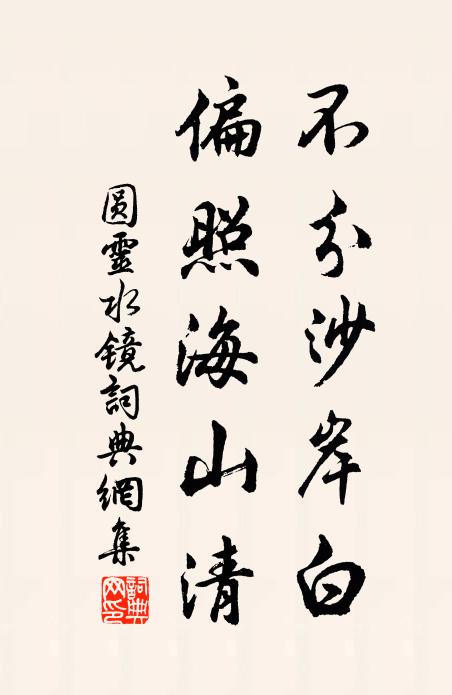 不分沙岸白
偏照海山清
圓靈水鏡詞典網集
詞典网印